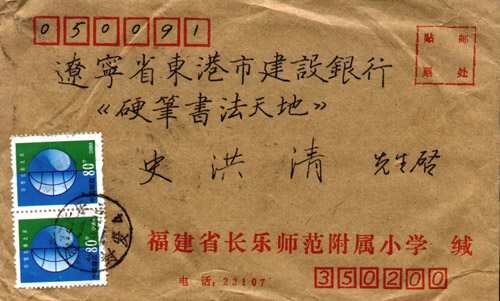 050091
贴 邮
票 处
遼寧省東港市建設銀行
《硬筆書法天地》
史洪清 先生啓
80分
CHINA
80分
CHINA
福建省长乐师范附属小学 缄
电话:22107
350200